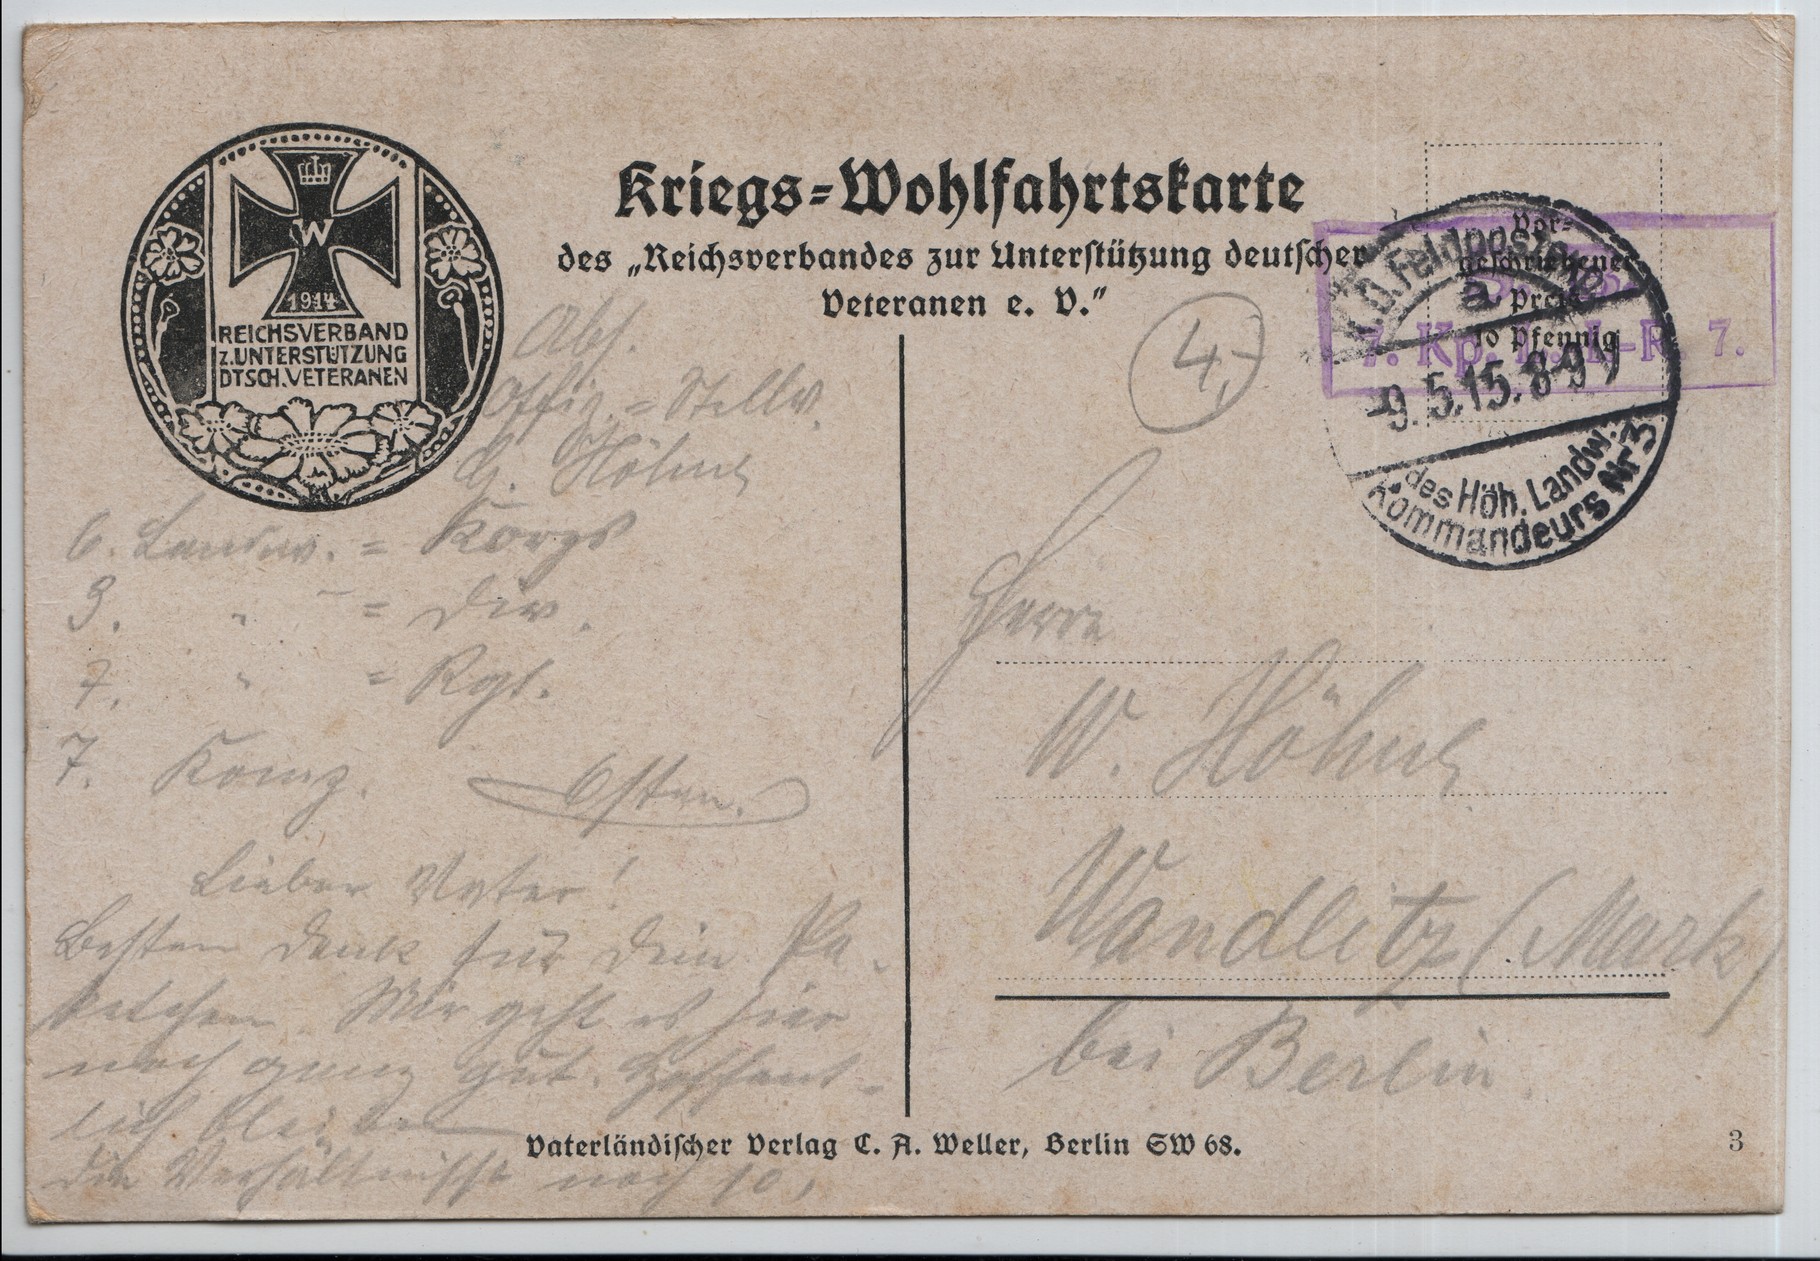 Kriegs=Wohlfahrtskarte
des „Reichsverbandes zur Unterstützung deutscher
Veteranen e. V.“
W
1914
REICHSVERBAND
Z. UNTERSTÜTZUNG
DTSCH. VETERANEN
Vor-
geschriebener
Preis
10 Pfennig
S. B.
7. Kp. L.-I.-R. 7.
K.D. Feldpostexp.
a
9.5.15. 8-9V
des Höh. Landw.
Kommandeurs Nr 3
4,-
Abs.
Offiz. = Stellv.
G. Höhne
6. Landw. = Korps
3. " = Div.
7. " = Rgt.
7. Komp. Osten.
Lieber Vater!
Besten Dank für Dein Pa-
ketchen. Mir geht es hier
noch ganz gut. Hoffent-
lich bleiben
die Verhältnisse noch so,
Herrn
W. Höhne
Wandlitz (Mark)
bei Berlin
Vaterländischer Verlag C. A. Weller, Berlin SW 68.
3